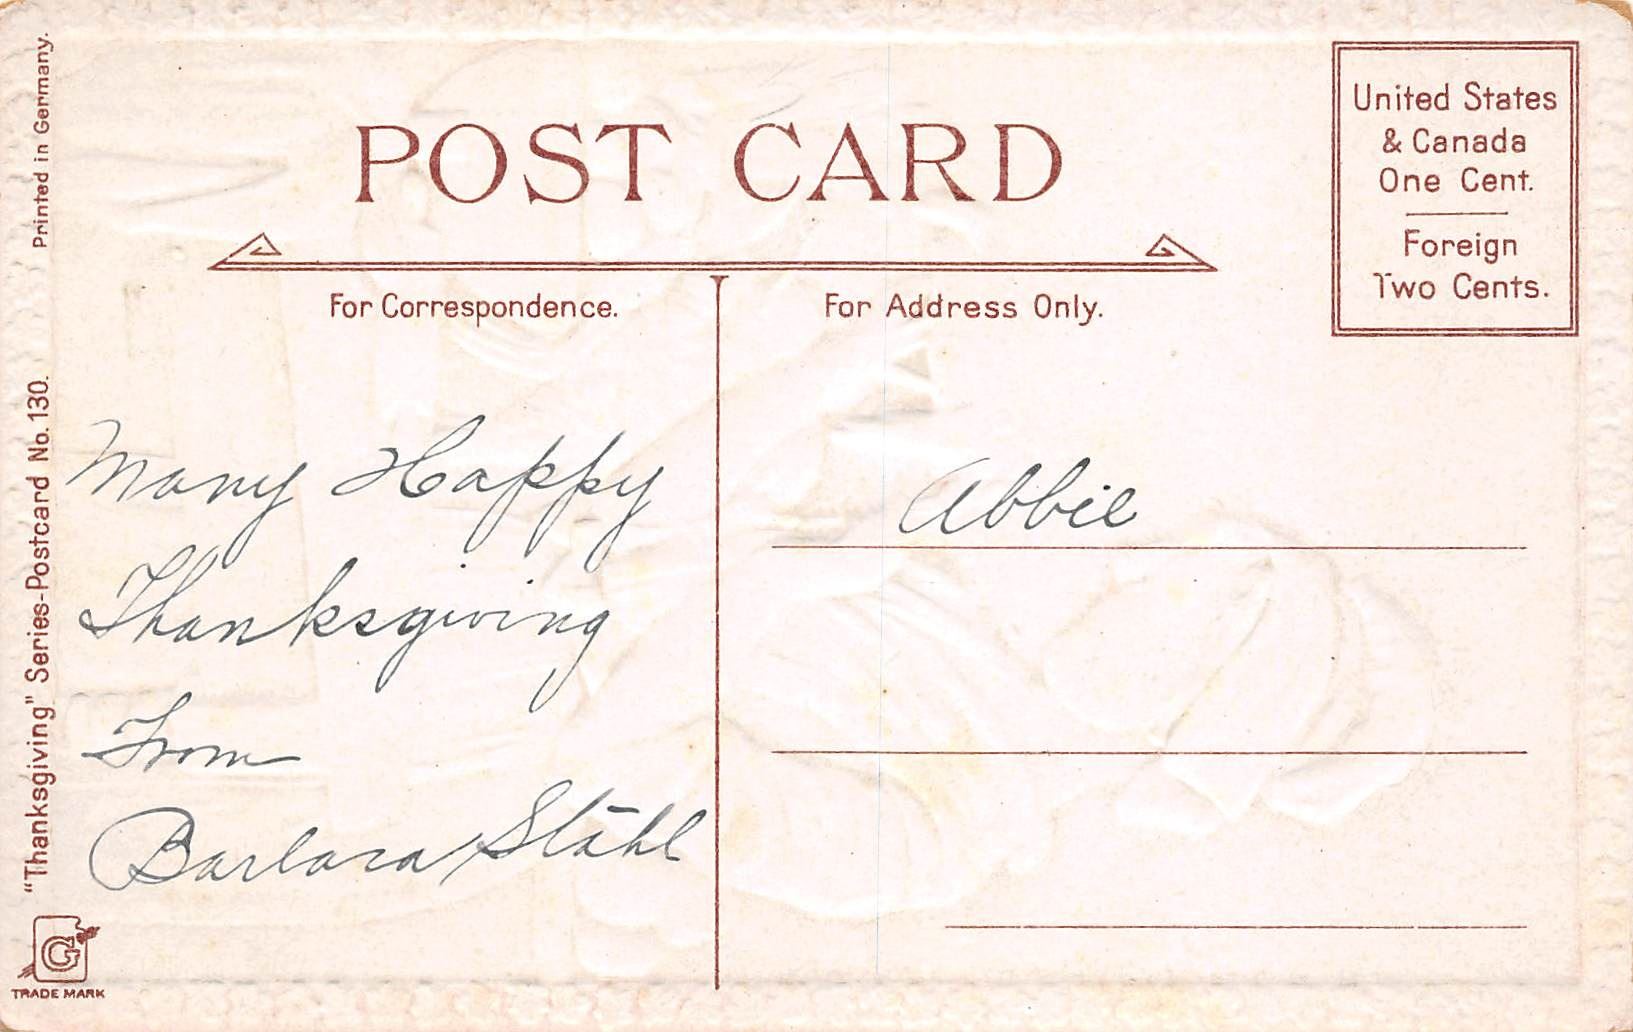 POST CARD
United States
& Canada
One Cent.
Foreign
Two Cents.
For Correspondence.
For Address Only.
Many Happy
Thanksgiving
From
Barbara Stahl
Abbie
Printed in Germany.
"Thanksgiving" Series-Postcard No. 130.
G
TRADE MARK